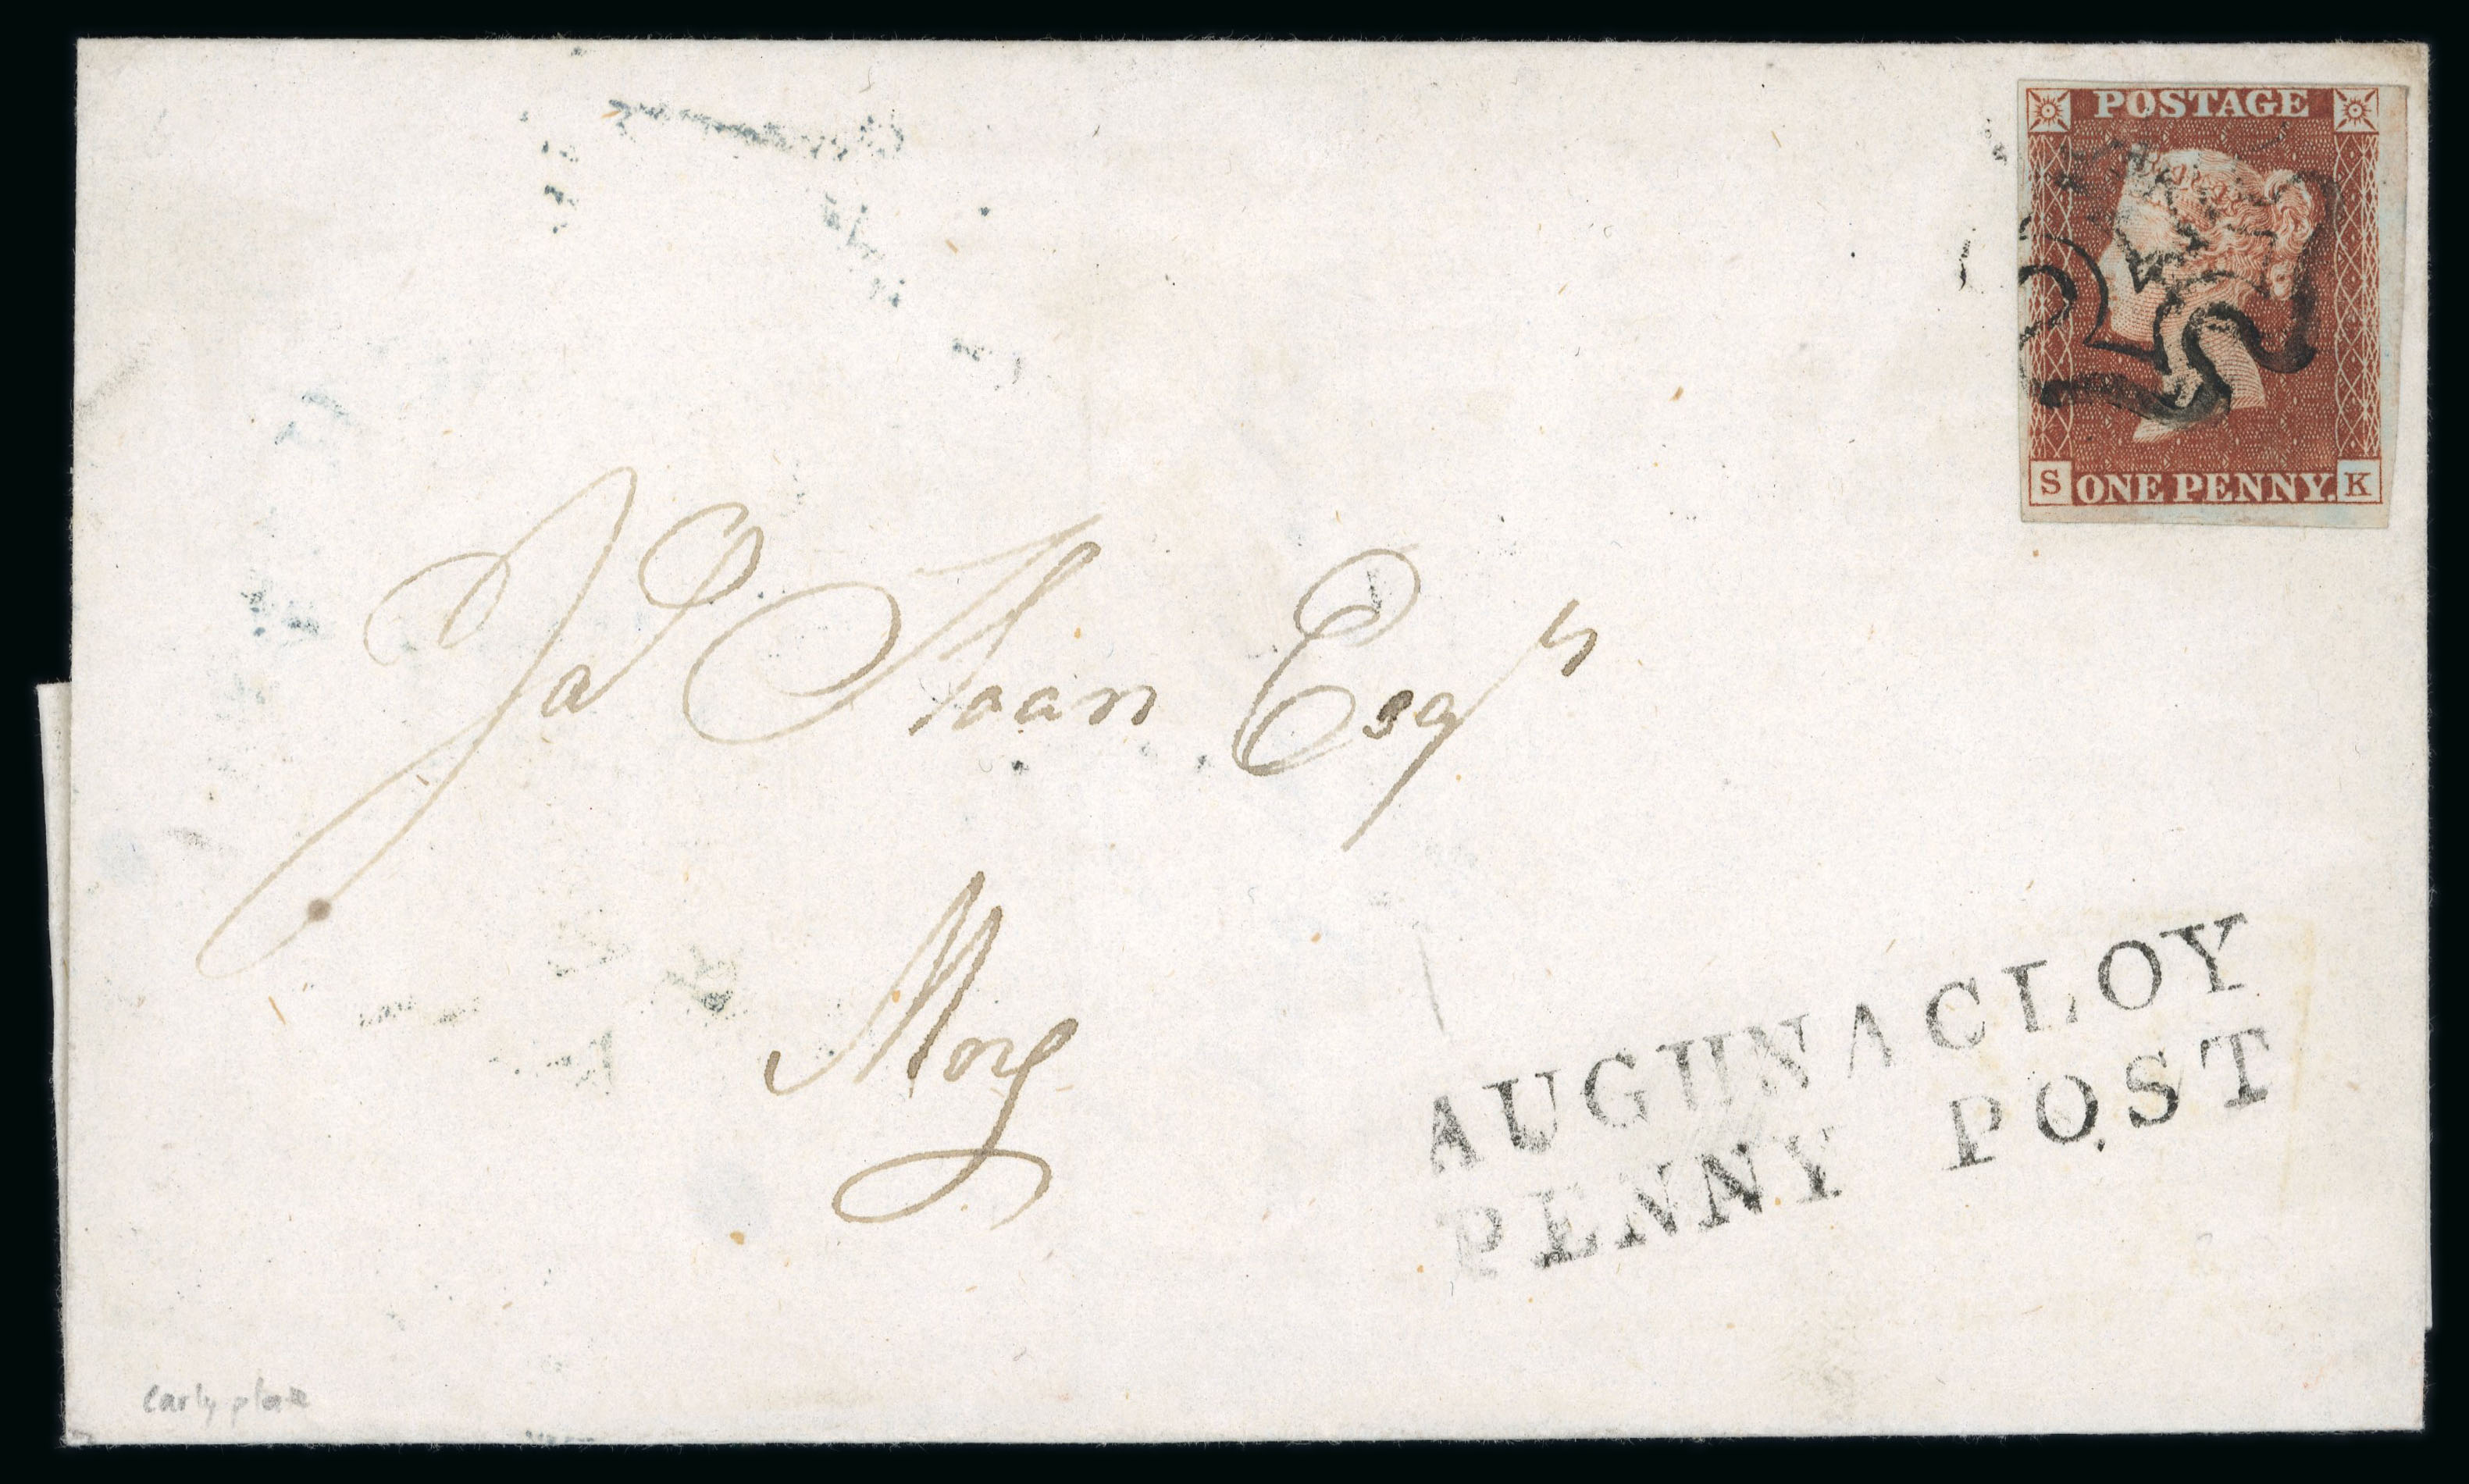 POSTAGE
S ONE PENNY. K
Jas Sloan Esqr
Moy
AUGHNACLOY
PENNY POST
early plate